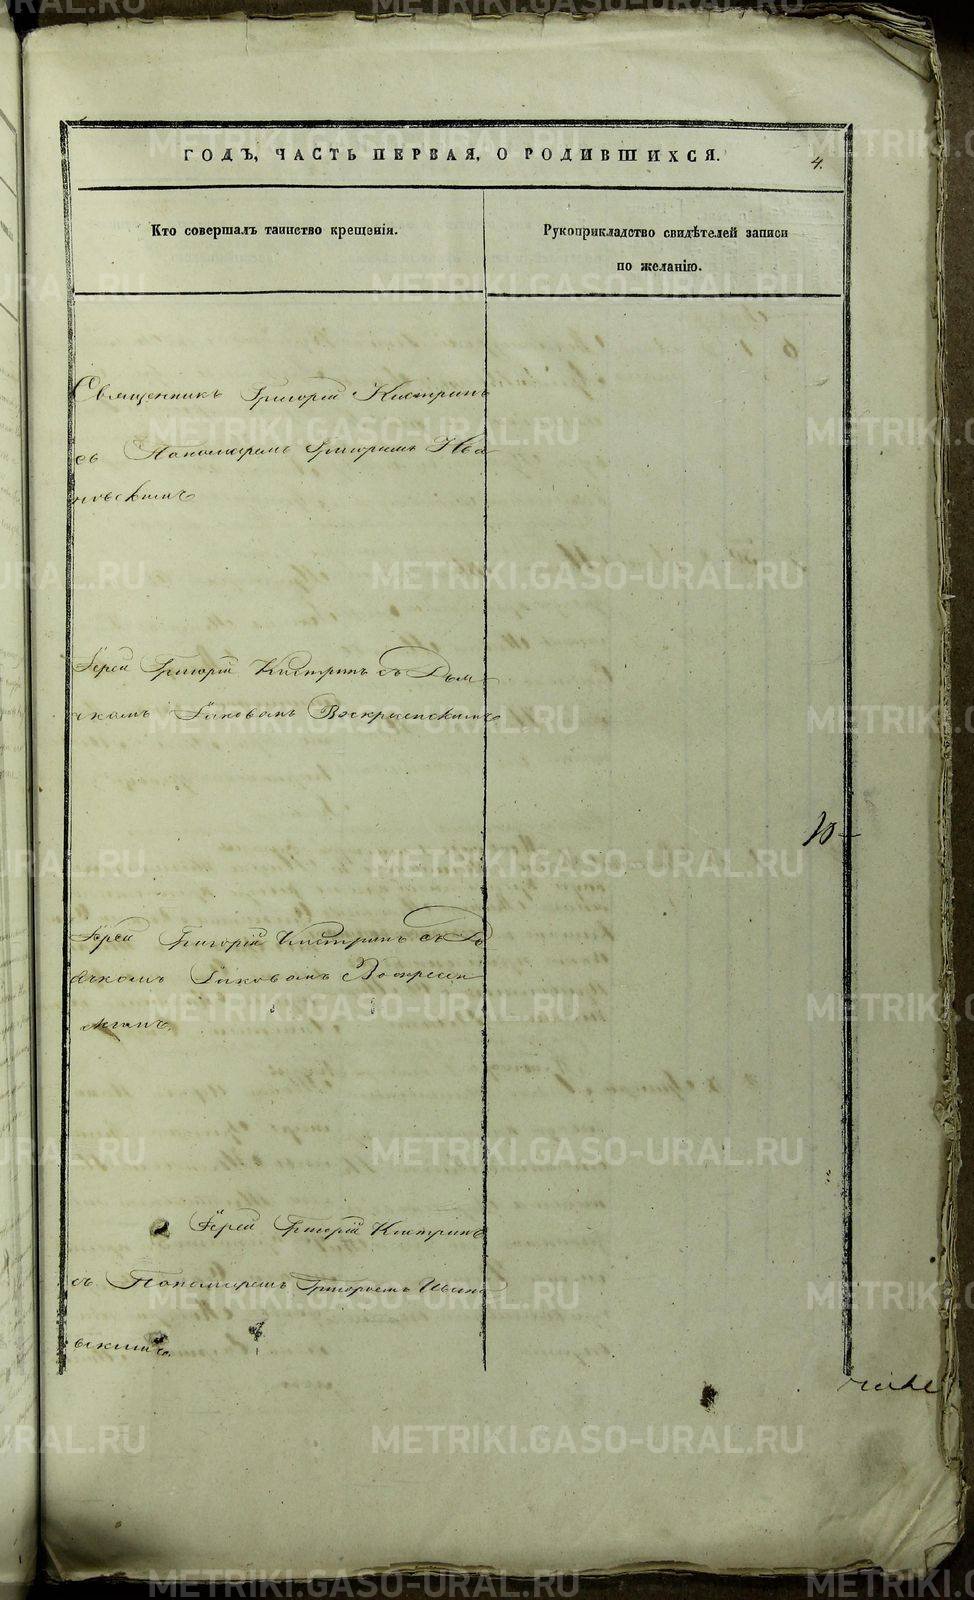 ГОДЪ, ЧАСТЬ ПЕРВАЯ, О РОДИВШИХСЯ.
4.
Кто совершалъ таинство крещенія.
Рукоприкладство свидѣтелей записи
по желанію.
Священникъ Григорій Кистринъ
съ Пономаремъ Григоріемъ Ива
новскимъ
Іерей Григорій Кистринъ съ Дья
Іаковомъ Воскресенскимъ
Іерей Григорій Кистринъ съ
Іаковомъ Воскресен
скимъ.
Іерей Григорій Кистринъ
съ Пономаремъ Григоріемъ Ивано
вскимъ.
METRIKI.GASO-URAL.RU